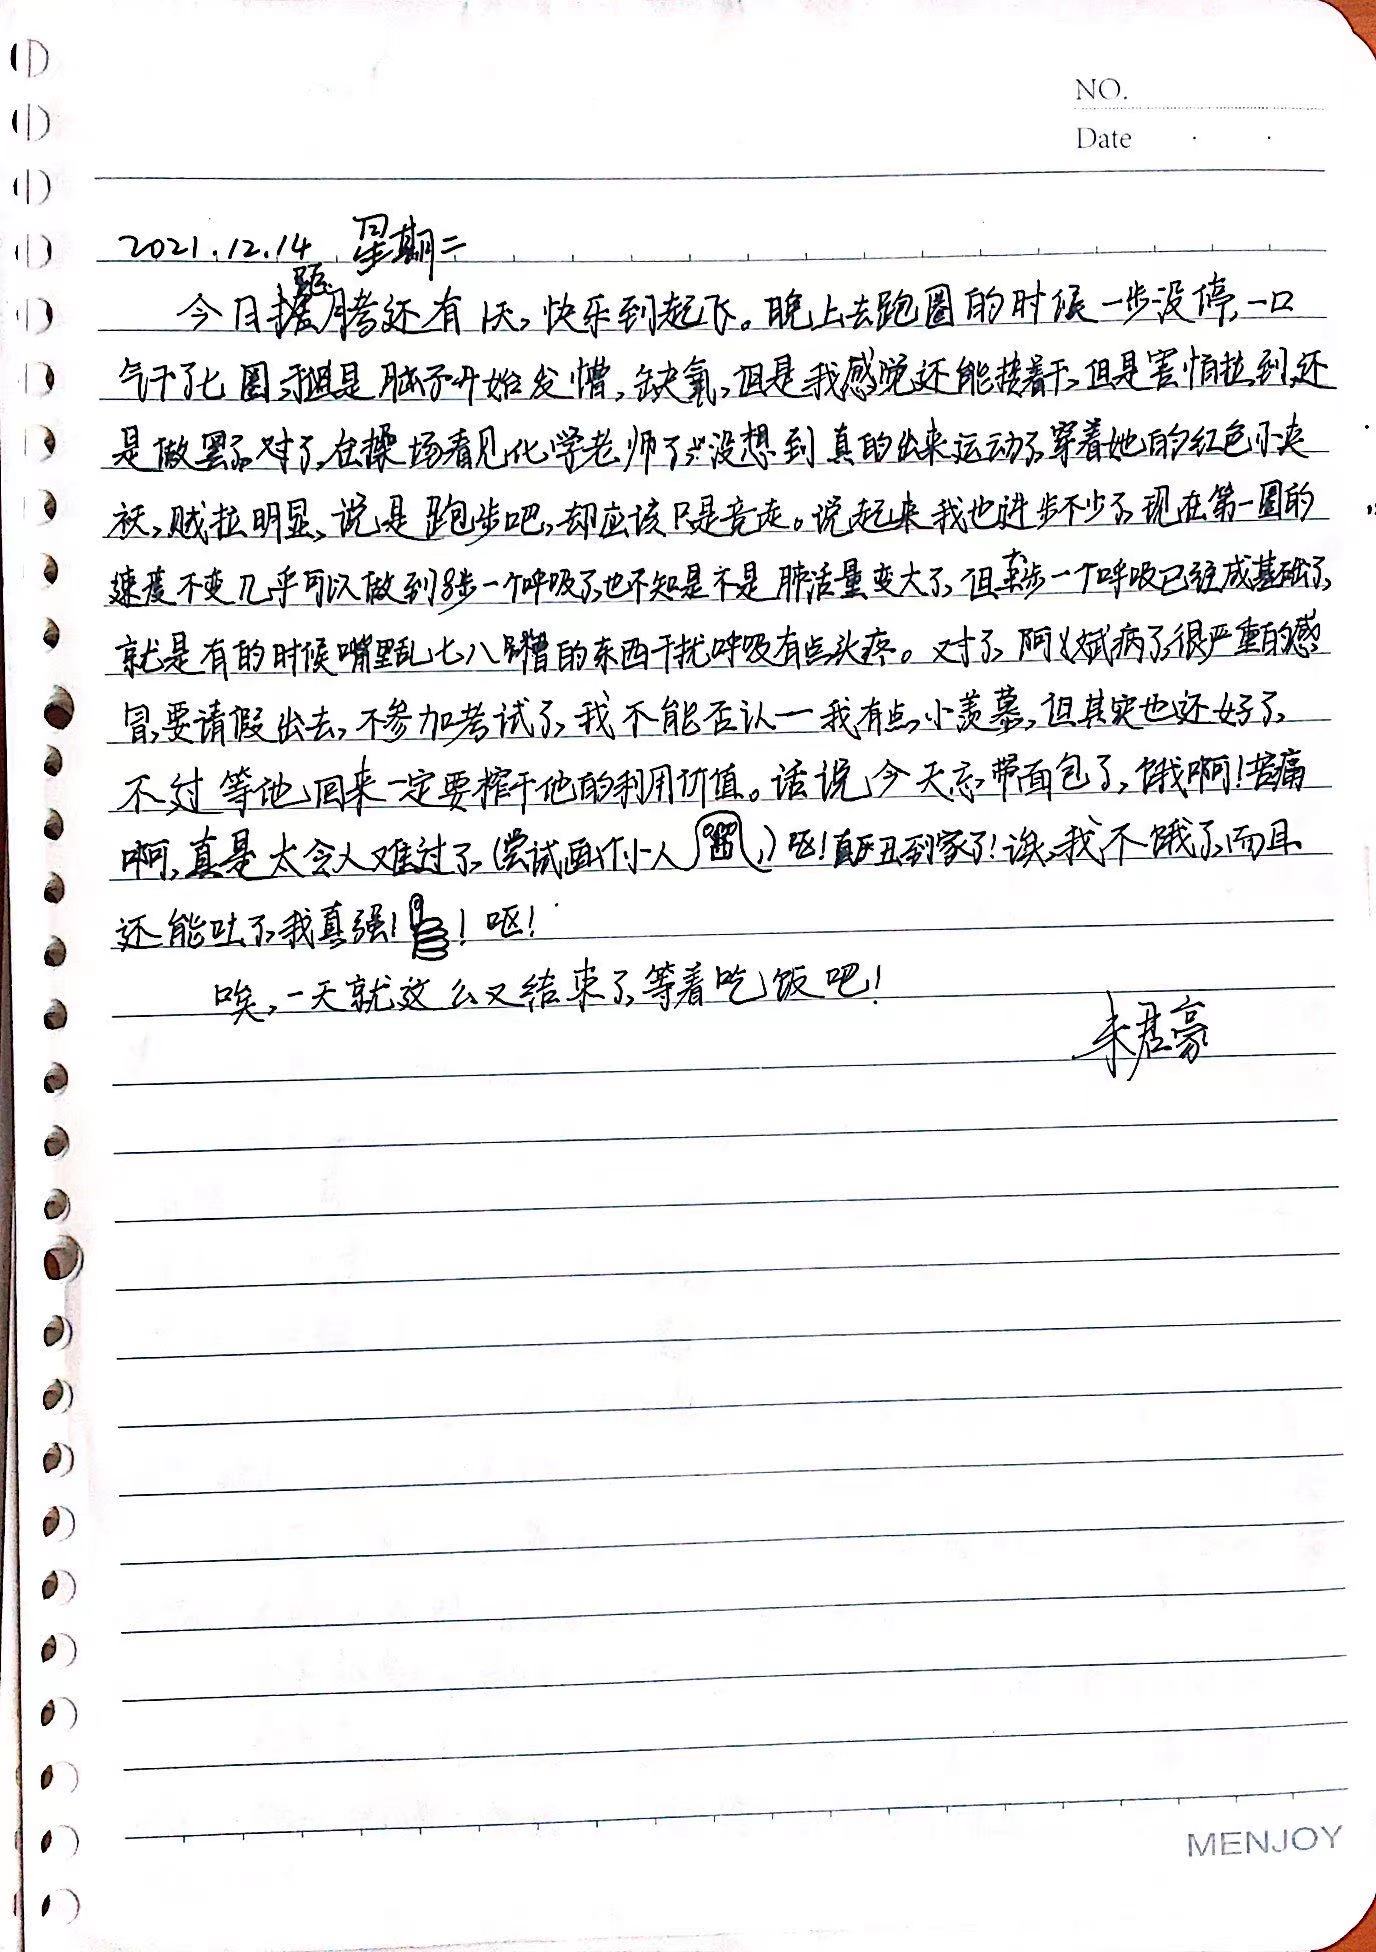 NO.
Date
2021.12.14 星期二
今日距月考还有1天，快乐到起飞。晚上去跑圈的时候一步没停，一口
气干了七圈，但是脑子开始发懵，缺氧，但是我感觉还能接着干，但是害怕拉到，还
是做罢了。对了，在操场看见化学老师了，没想到真的出来运动了，穿着她的红色小夹
袄，贼拉明显，说是跑步吧，却应该只是竞走。说起来我也进步不少了，现在第一圈的
速度不变几乎可以做到8步一个呼吸了，也不知是不是肺活量变大了，但步一个呼吸已经成基础了，
就是有的时候嘴里乱七八糟的东西干扰呼吸有点头疼。对了，阿斌病了，很严重的感
冒，要请假出去，不参加考试了，我不能否认——我有点小羡慕，但其实也还好了，
不过等他回来一定要榨干他的利用价值。话说，今天忘带面包了，饿啊！苦痛
啊，真是太令人难过了，（尝试画个小人）呕！真丑到家了！诶，我不饿了，而且
还能吐了，我真强！！呕！
唉，一天就这么又结束了，等着吃饭吧！
朱君豪
MENJOY